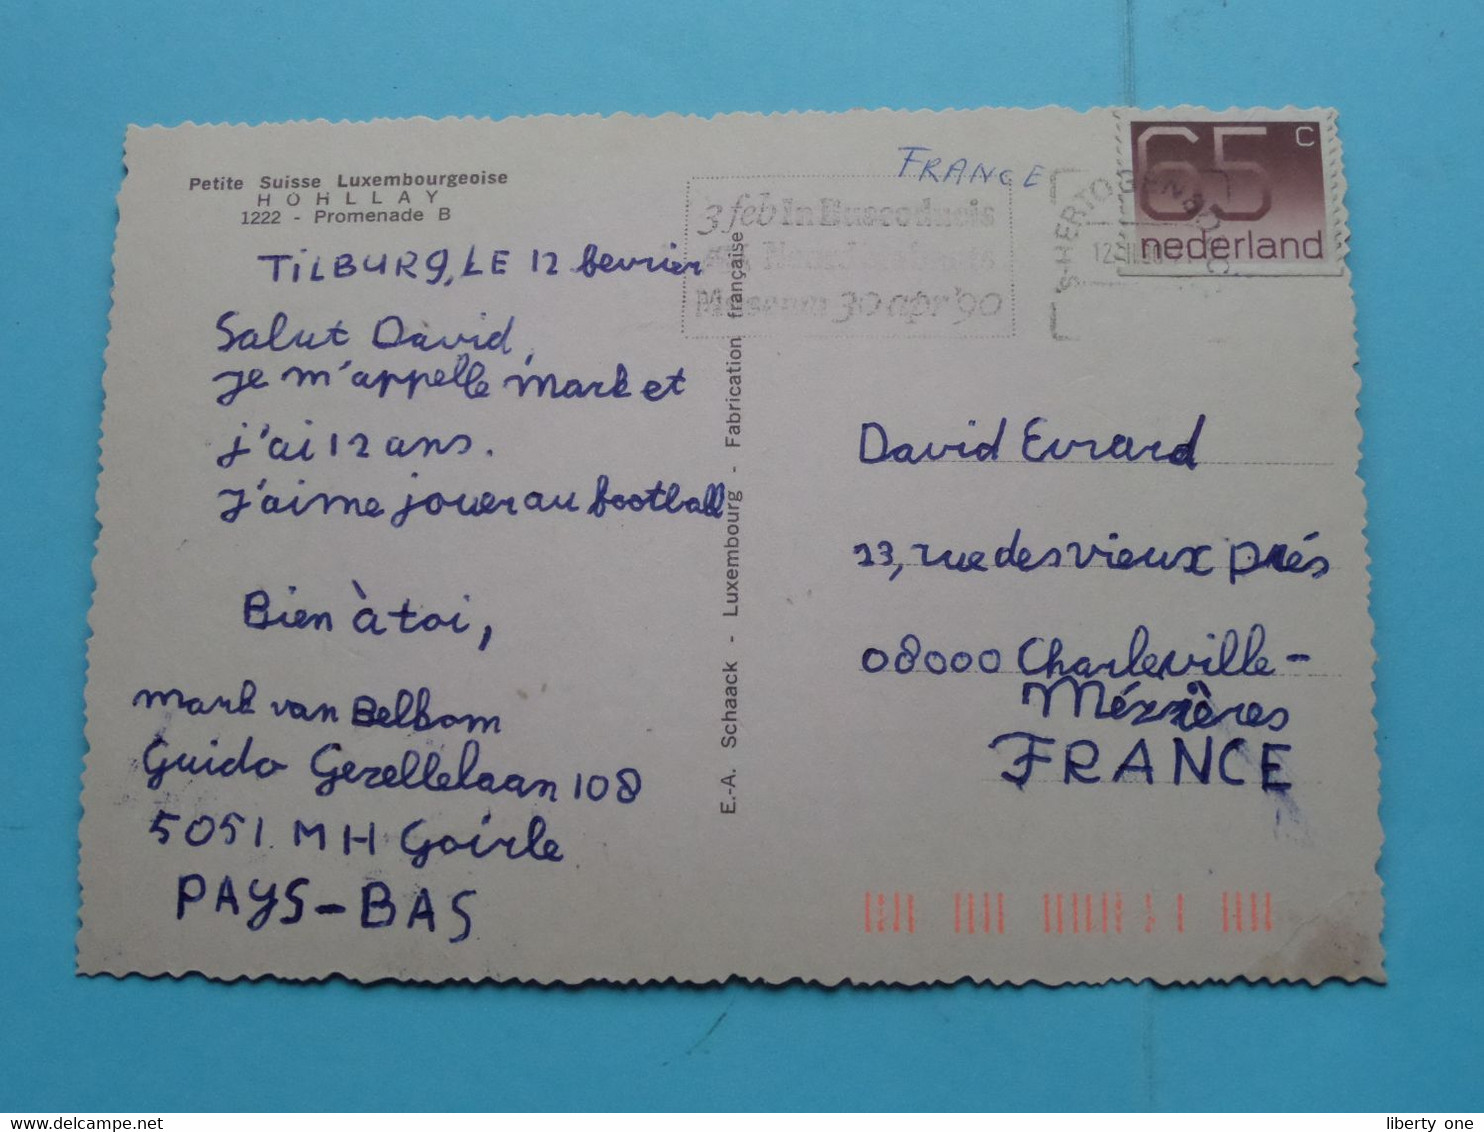 Petite Suisse Luxembourgeoise
HOHLLAY
1222 - Promenade B
TILBURG, LE 12 fevrier
Salut David,
je m'appelle Mark et
j'ai 12 ans.
J'aime jouer au football
Bien à toi,
Mark van Belkom
Guido Gezellelaan 108
5051 MH Goirle
PAYS-BAS
E.-A. Schaack - Luxembourg - Fabrication française
FRANCE
3 feb In Buscoducis
Museum 30 apr '90
S-HERTOGENBOSCH
65 c
nederland
David Evrard
23, rue des vieux prés
08000 Charleville-
Mézières
FRANCE
liberty one